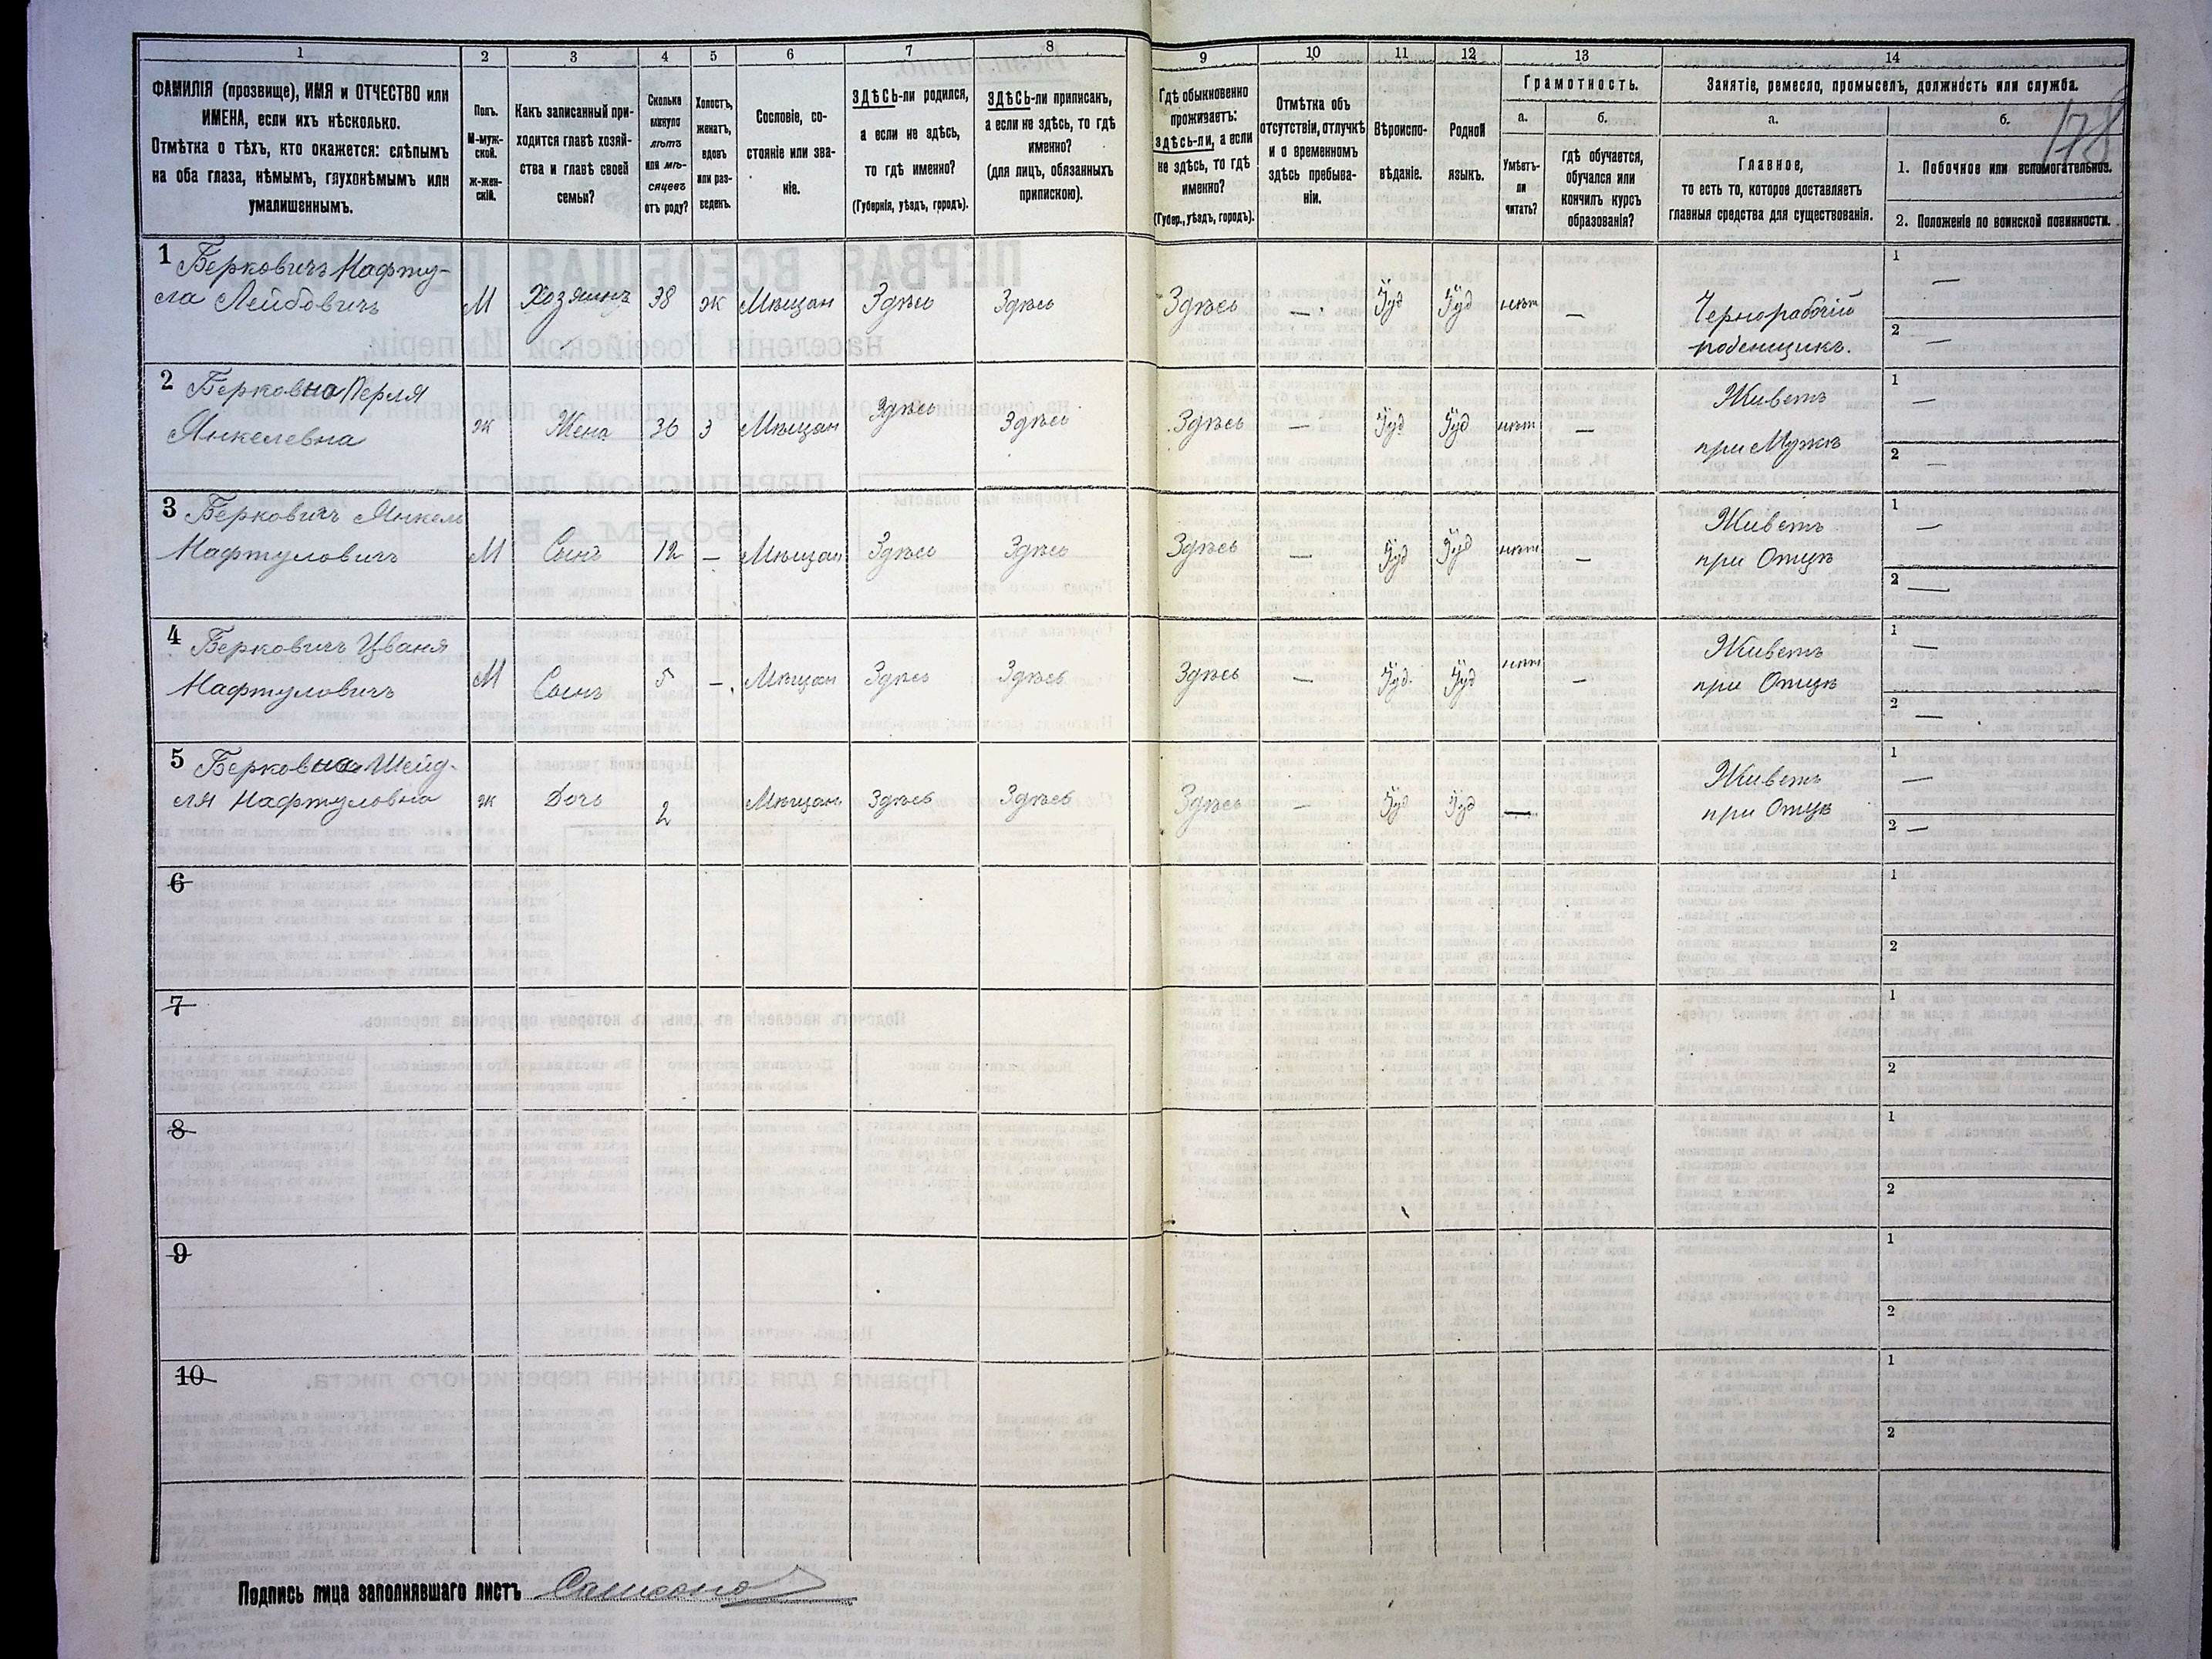 1 2 3 4 5 6 7 8 9 10 11 12 13 14
ФАМИЛІЯ (прозвище), ИМЯ и ОТЧЕСТВО или
ИМЕНА, если ихъ нѣсколько.
Отмѣтка о тѣхъ, кто окажется: слѣпымъ
на оба глаза, нѣмымъ, глухонѣмымъ или
умалишеннымъ.
Полъ.
М-муж-
ской.
Ж-жен-
скій.
Какъ записанный при-
ходится главѣ хозяй-
ства и главѣ своей
семьи?
Сколько
минуло
лѣтъ
или мѣ-
сяцевъ
отъ роду?
Холостъ,
женатъ,
вдовъ
или раз-
веденъ.
Сословіе, со-
стояніе или зва-
ніе.
ЗДѢСЬ-ли родился,
а если не здѣсь,
то гдѣ именно?
(Губернія, уѣздъ, городъ).
ЗДѢСЬ-ли приписанъ,
а если не здѣсь, то гдѣ
именно?
(для лицъ, обязанныхъ
припискою).
Гдѣ обыкновенно
проживаетъ:
здѣсь-ли, а если
не здѣсь, то гдѣ
именно?
(Губер., уѣздъ, городъ).
Отмѣтка объ
отсутствіи, отлучкѣ
и о временномъ
здѣсь пребыва-
ніи.
Вѣроиспо-
вѣданіе.
Родной
языкъ.
Грамотность.
а.
Умѣетъ-
ли
читать?
б.
гдѣ обучается,
обучался или
кончилъ курсъ
образованія?
Занятіе, ремесло, промыселъ, должность или служба.
а.
Главное,
то есть то, которое доставляетъ
главныя средства для существованія.
б.
178
1. Побочное или вспомогательное.
2. Положеніе по воинской повинности.
1 Берковичъ Нафту-
ла Лейбовичъ
М Хозяинъ 38 ж Мѣщан Здѣсь Здѣсь Здѣсь — Їуд Їуд нѣт —
Чернорабочій
1 —
2 —
2 Берковна Перля
Янкелевна
ж Жена 36 з Мѣщан Здѣсь Здѣсь Здѣсь — Їуд Їуд нѣт —
Живетъ
при Мужѣ
1 —
2 —
3 Берковичъ Янкель
Нафтуловичъ
М Сынъ 12 — Мѣщан Здѣсь Здѣсь Здѣсь — Їуд Їуд нѣт —
Живетъ
при Отцѣ
1 —
2 —
4 Берковичъ Цваня
Нафтуловичъ
М Сынъ 5 — Мѣщан Здѣсь Здѣсь Здѣсь — Їуд Їуд нѣт —
Живетъ
при Отцѣ
1 —
2 —
5 Берковна Шейд-
ля Нафтуловна
ж Дочь 2 Мѣщан Здѣсь Здѣсь Здѣсь — Їуд Їуд —
Живетъ
при Отцѣ
1 —
2 —
6 1
2
7 1
2
8 1
2
9 1
2
10 1
2
Подпись лица заполнявшаго листъ